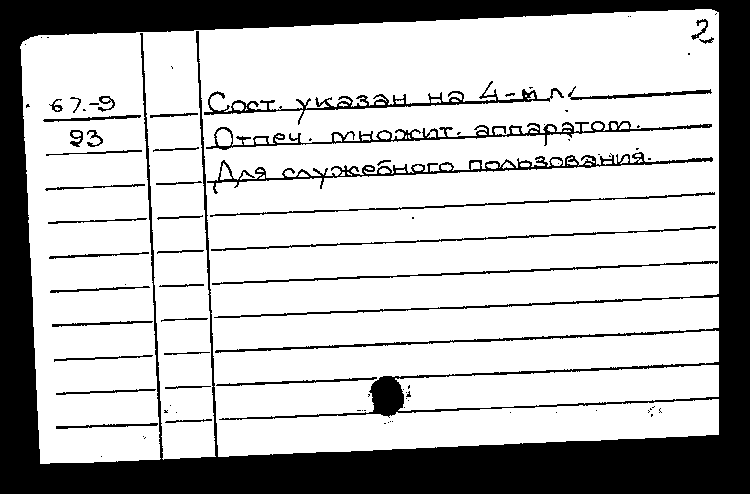 2
67.-9 Сост. указан на 4-м л.
93 Отпеч. множит. аппаратом.
Для служебного пользования.